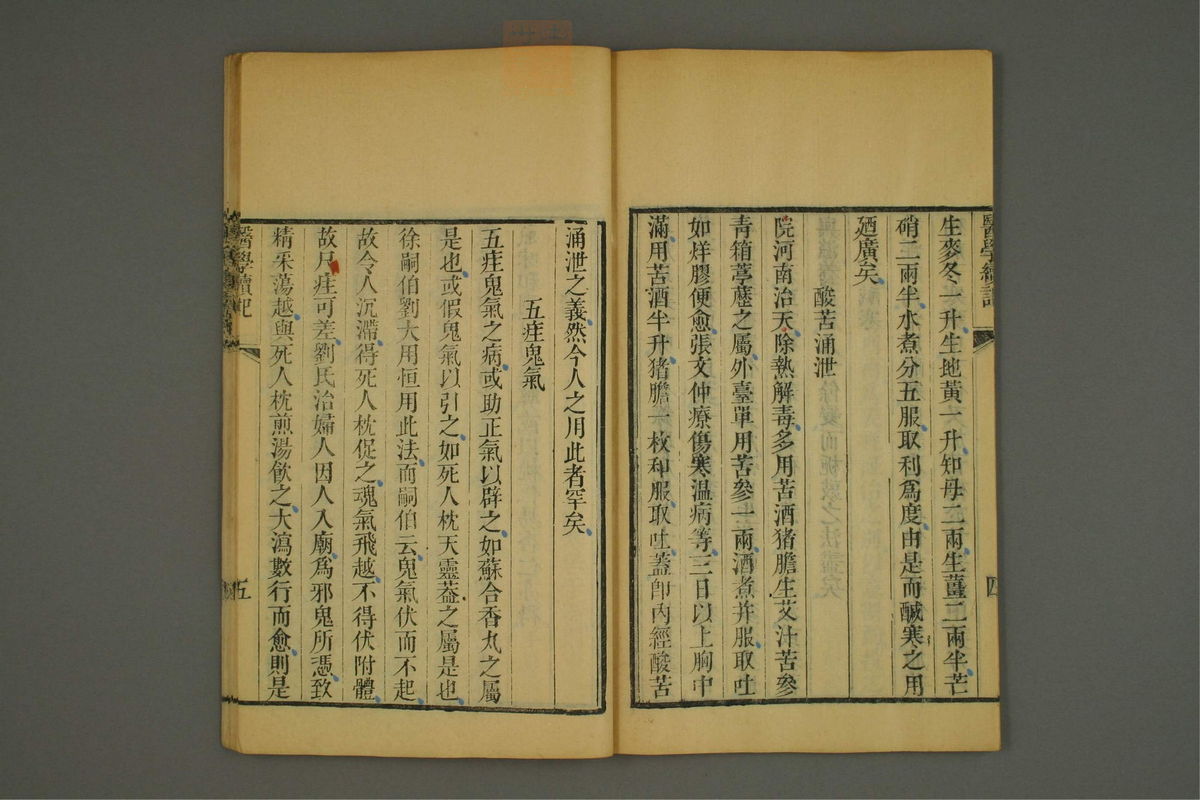 生麥冬一升生地黃一升知母二兩生薑二兩半芒
硝二兩半水煮分五服取利爲度由是而鹹寒之用
廼廣矣
酸苦涌泄
院河南治天除熱解毒多用苦酒猪膽生艾汁苦參
青箱葶藶之屬外臺單用苦參一兩酒煮并服取吐
如烊膠便愈張文仲療傷寒溫病等三日以上胸中
滿用苦酒半升猪膽一枚和服取吐蓋卽內經酸苦
涌泄之義然今人之用此者罕矣
五疰鬼氣
五疰鬼氣之病或助正氣以辟之如蘇合香丸之屬
是也或假鬼氣以引之如死人枕天靈蓋之屬是也
徐嗣伯劉大用恒用此法而嗣伯云鬼氣伏而不起
故令人沉滯得死人枕促之魂氣飛越不得伏附體
故尸疰可差劉氏治婦人因人入廟爲邪鬼所憑致
精采蕩越與死人枕煎湯飲之大瀉數行而愈則是
醫學讀記
五